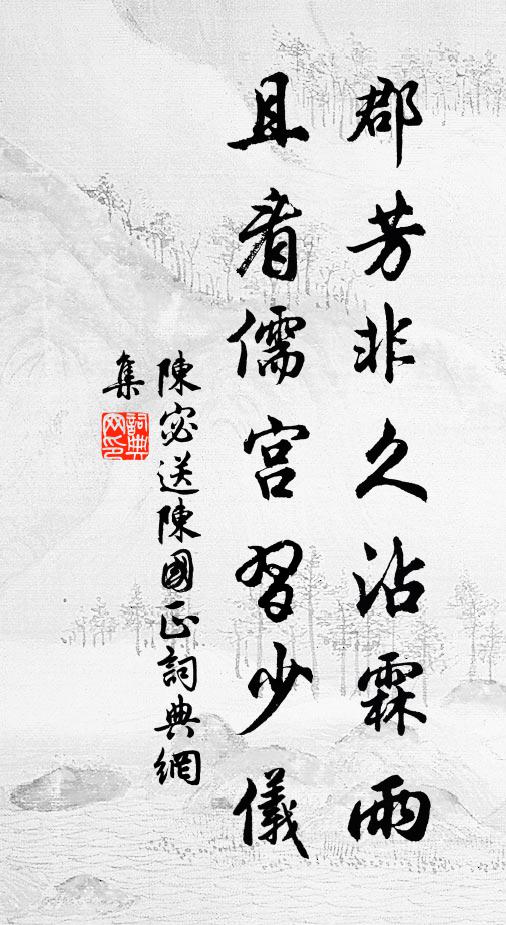 郡芳非久沾霖雨
且看儒宮習少儀
陳宓送陳國正詞典網
集
詞典網印